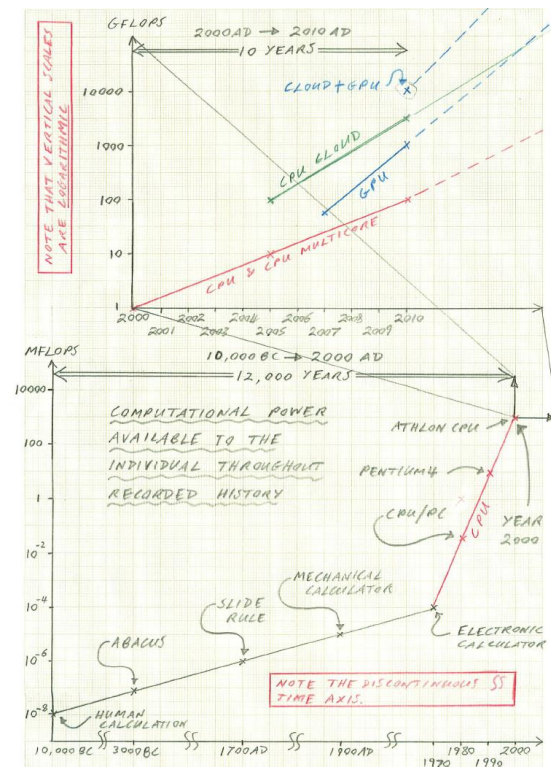 GFLOPS
2000AD → 2010 AD
10 YEARS
NOTE THAT VERTICAL SCALES
ARE LOGARITHMIC
CLOUD+GPU
10000
1000
100
10
1
CPU CLOUD
GPU
CPU & CPU MULTICORE
2000 2002 2004 2006 2008 2010
2001 2003 2005 2007 2009
MFLOPS
10,000BC → 2000 AD
12,000 YEARS
10000
100
1
10⁻²
10⁻⁴
10⁻⁶
10⁻⁸
COMPUTATIONAL POWER
AVAILABLE TO THE
INDIVIDUAL THROUGHOUT
RECORDED HISTORY
ATHLON CPU
PENTIUM4
CPU/PC
CPU
YEAR
2000
MECHANICAL
CALCULATOR
SLIDE
RULE
ABACUS
ELECTRONIC
CALCULATOR
HUMAN
CALCULATION
NOTE THE DISCONTINUOUS
TIME AXIS.
10,000BC 3000BC 1700AD 1900AD 1980 2000
1970 1990